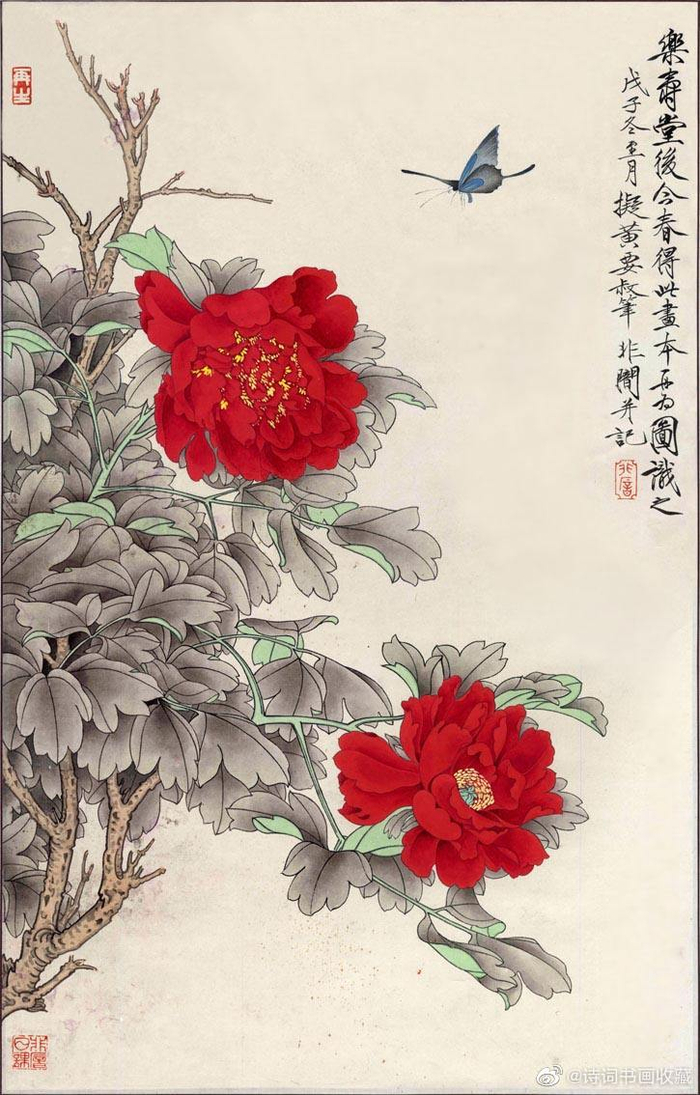 樂壽堂後今春得此畫本再为圖識之
戊子冬至月擬黃要叔筆非闇并記
非闇
再生
@诗词书画收藏